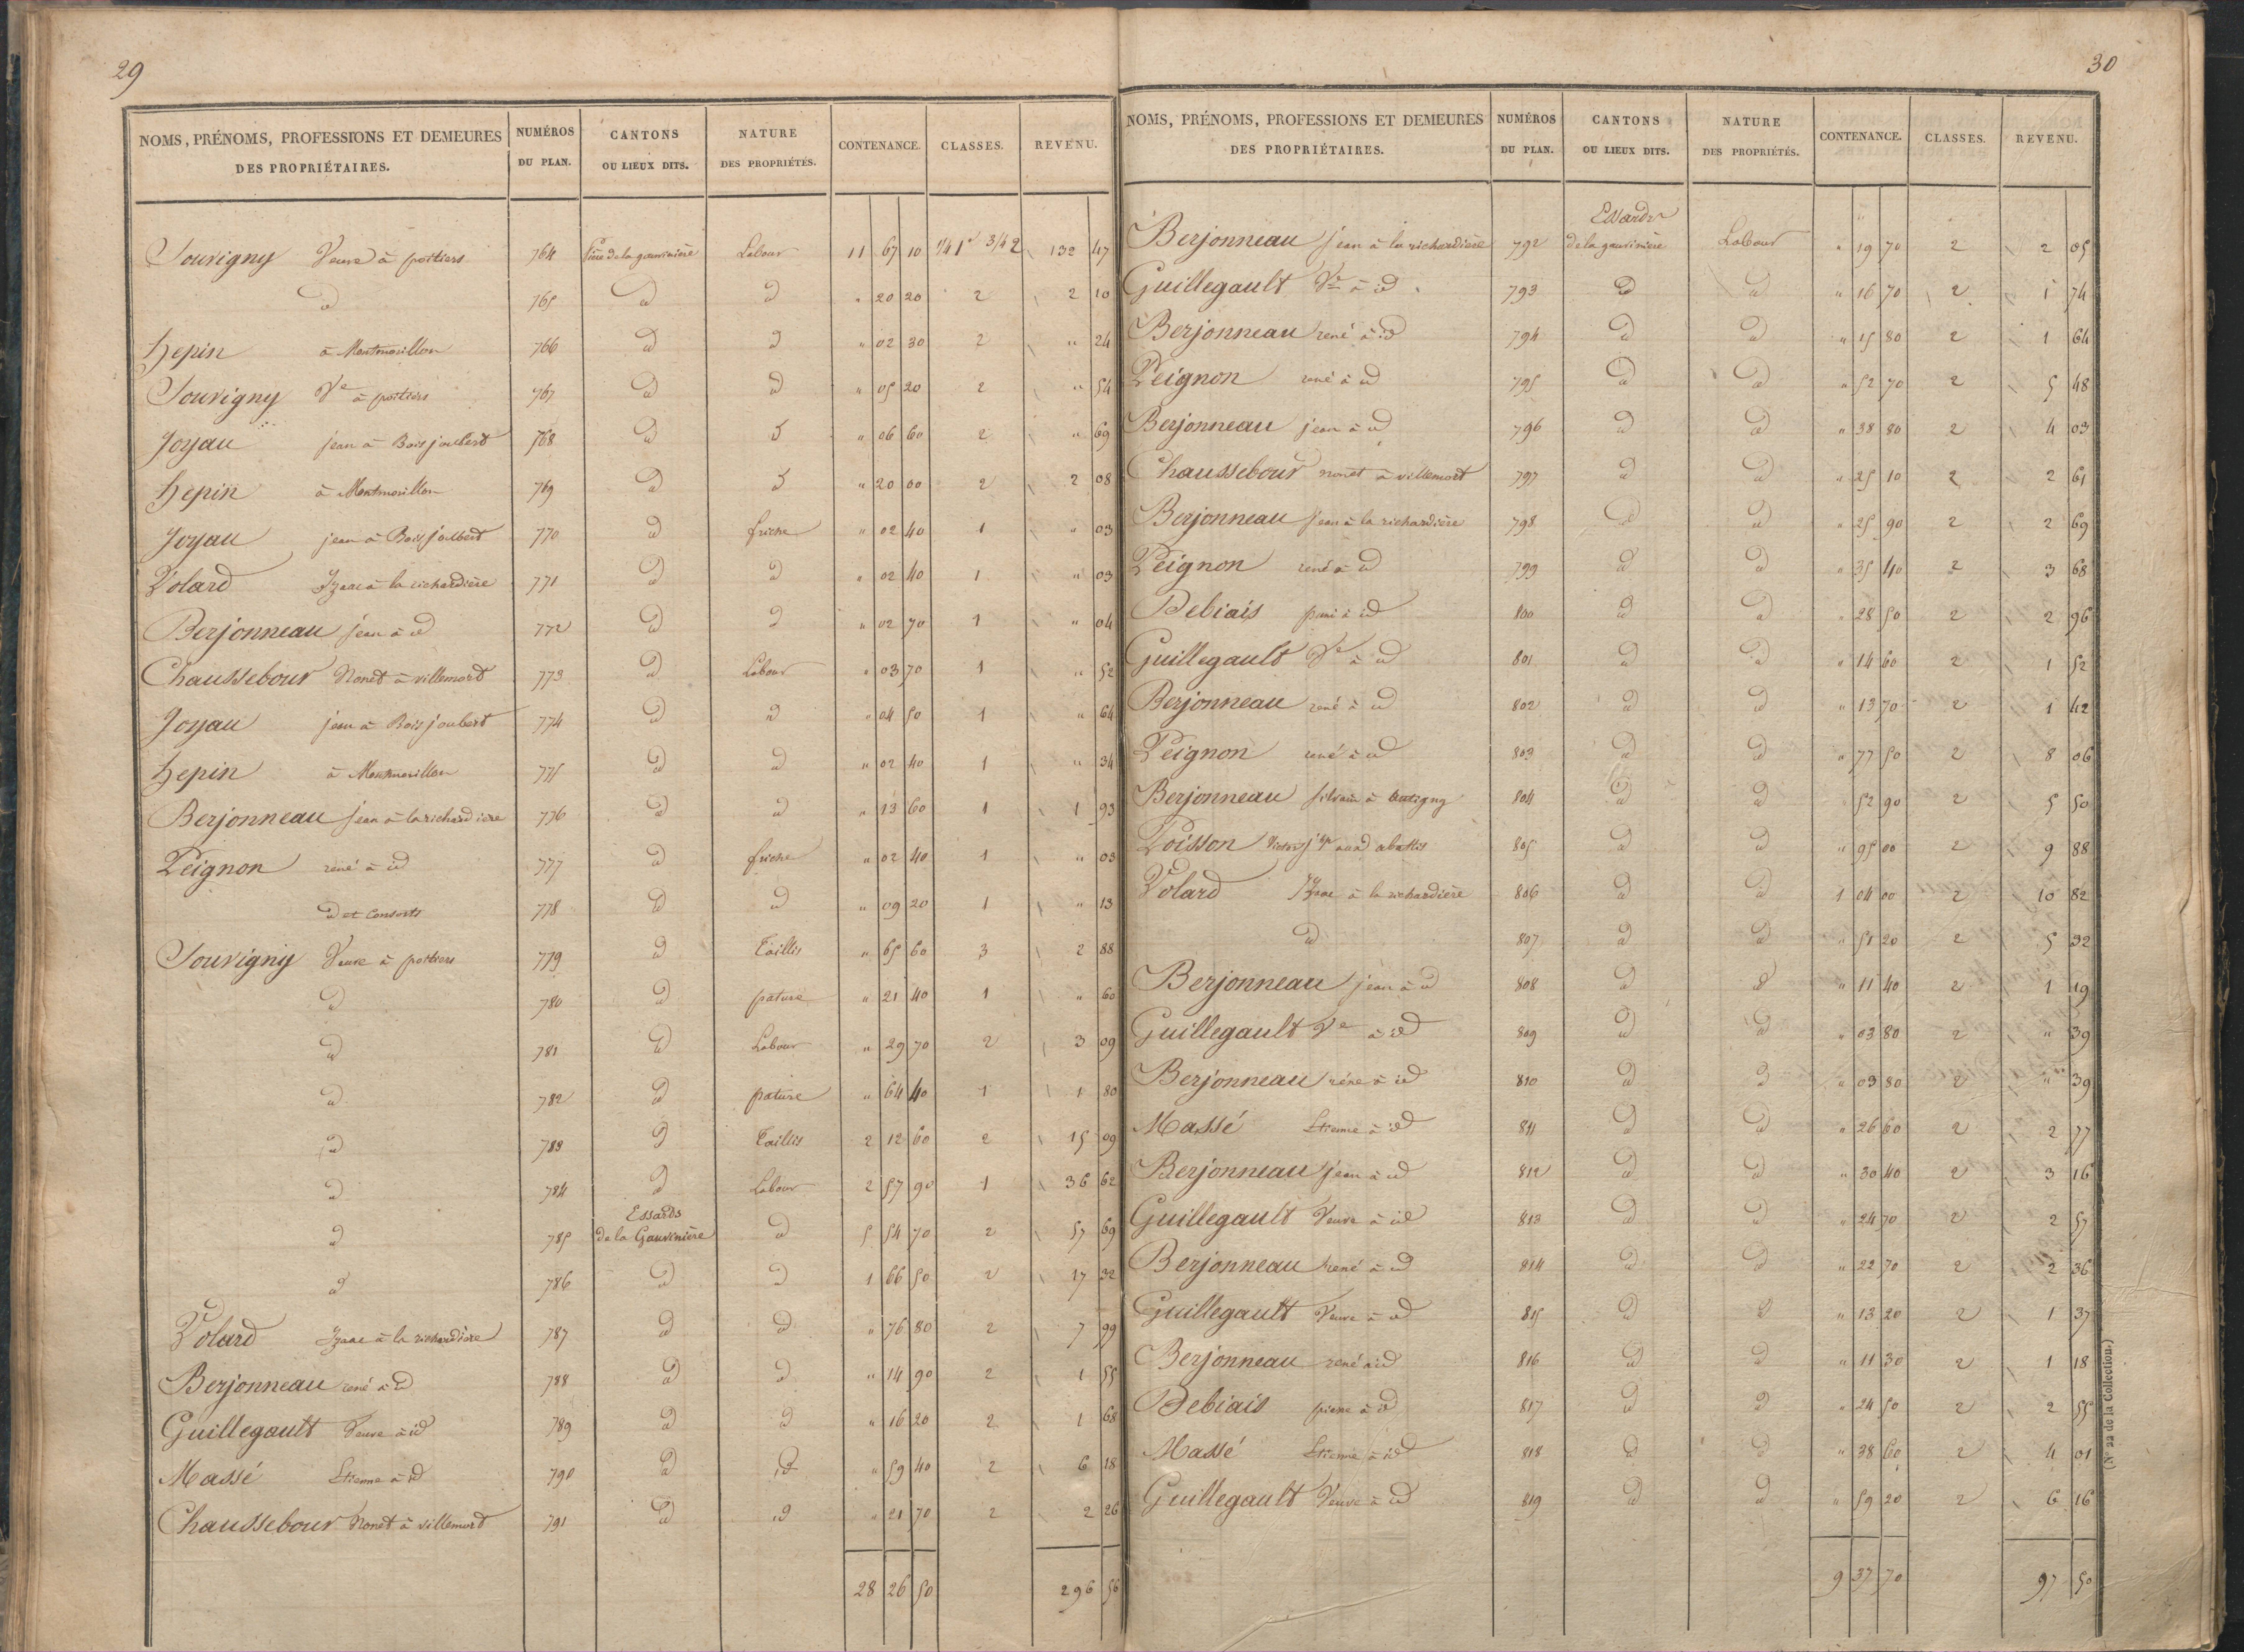 29
NOMS, PRÉNOMS, PROFESSIONS ET DEMEURES DES PROPRIÉTAIRES. NUMÉROS DU PLAN. CANTONS OU LIEUX DITS. NATURE DES PROPRIÉTÉS. CONTENANCE. CLASSES. REVENU.
Souvigny Veuve à poitiers 764 de la gauvinière Labour 11 67 10 1/4 1e 3/4 2 132 47
id 765 id id " 20 20 2 2 10
hepin à Montmorillon 766 id id " 02 30 2 " 24
Souvigny Ve à poitiers 767 id id " 05 20 2 " 54
Joyau jean à Bois joubert 768 id id " 06 60 2 " 69
hepin à Montmorillon 769 id id " 20 00 2 2 08
Joyau jean à Bois joubert 770 id friche " 02 40 1 " 03
Volard Izaac à la richardière 771 id id " 02 40 1 " 03
Berjonneau jean à id 772 id id " 02 70 1 " 04
Chaussebour Nonet à villemort 773 id Labour " 03 70 1 " 52
Joyau jean à Bois joubert 774 id id " 04 50 1 " 64
hepin à Montmorillon 775 id id " 02 40 1 " 34
Berjonneau jean à la richardière 776 id id " 13 60 1 1 93
Peignon rené à id 777 id friche " 02 40 1 " 03
id et Consorts 778 id id " 09 20 1 " 13
Souvigny Veuve à poitiers 779 id Taillis " 65 60 3 2 88
id 780 id pature " 21 40 1 " 60
id 781 id Labour " 29 70 2 3 09
id 782 id pature " 64 40 1 1 80
id 783 id Taillis 2 12 60 2 15 09
id 784 id Labour 2 57 90 1 36 62
id 785 Essards de la Gauvinière id 5 54 70 2 57 69
id 786 id id 1 66 50 2 17 32
Volard Izaac à la richardière 787 id id " 76 80 2 7 99
Berjonneau rené à id 788 id id " 14 90 2 1 55
Guillegault Veuve à id 789 id id " 16 20 2 1 68
Massé Etienne à id 790 id id " 59 40 2 6 18
Chaussebour Nonet à villemort 791 id id " 21 70 2 2 26
28 26 50 296 56
30
NOMS, PRÉNOMS, PROFESSIONS ET DEMEURES DES PROPRIÉTAIRES. NUMÉROS DU PLAN. CANTONS OU LIEUX DITS. NATURE DES PROPRIÉTÉS. CONTENANCE. CLASSES. REVENU.
Berjonneau jean à la richardière 792 Essards de la gauvinière Labour " 19 70 2 2 05
Guillegault Ve à id 793 id id " 16 70 2 1 74
Berjonneau rené à id 794 id id " 15 80 2 1 64
Peignon rené à id 795 id id " 52 70 2 5 48
Berjonneau jean à id 796 id id " 38 80 2 4 03
Chaussebour nonet à villemort 797 id id " 25 10 2 2 61
Berjonneau jean à la richardière 798 id id " 25 90 2 2 69
Peignon rené à id 799 id id " 35 40 2 3 68
Debiais à id 800 id id " 28 50 2 2 96
Guillegault Ve à id 801 id id " 14 60 2 1 52
Berjonneau rené à id 802 id id " 13 70 2 1 42
Peignon rené à id 803 id id " 77 50 2 8 06
Berjonneau silvain à antigny 804 id id " 52 90 2 5 50
Poisson Victor abattis 805 id id " 95 00 2 9 88
Volard Izaac à la richardière 806 id id 1 04 00 2 10 82
id 807 id id " 51 20 2 5 32
Berjonneau jean à id 808 id id " 11 40 2 1 19
Guillegault Ve à id 809 id id " 03 80 2 " 39
Berjonneau réne à id 810 id id " 03 80 2 " 39
Massé Etienne à id 811 id id " 26 60 2 2 77
Berjonneau jean à id 812 id id " 30 40 2 3 16
Guillegault Veuve à id 813 id id " 24 70 2 2 57
Berjonneau rené à id 814 id id " 22 70 2 2 36
Guillegault Veuve à id 815 id id " 13 20 2 1 37
Berjonneau rené à id 816 id id " 11 30 2 1 18
Debiais pierre à id 817 id id " 24 50 2 2 55
Massé Etienne à id 818 id id " 38 60 2 4 01
Guillegault Veuve à id 819 id id " 59 20 2 6 16
9 37 70 97 50
(N° 22 de la Collection.)